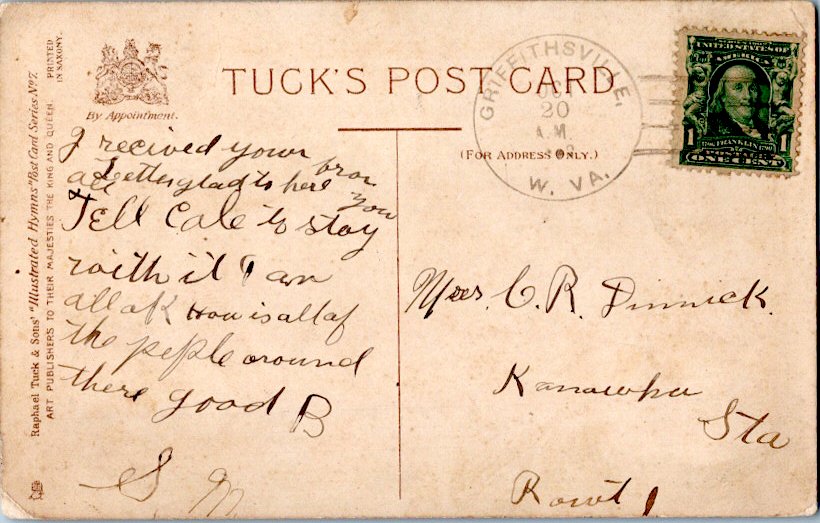 TUCK'S POST CARD
By Appointment.
(FOR ADDRESS ONLY.)
Raphael Tuck & Sons' "Illustrated Hymns" Post Card Series No 7.
ART PUBLISHERS TO THEIR MAJESTIES THE KING AND QUEEN.
PRINTED
IN SAXONY.
GRIFFITHSVILLE,
20
A.M.
W. VA.
UNITED STATES OF
AMERICA
1 1
1706 FRANKLIN 1790
POSTAGE
ONE CENT
I recived your
all Letters glad to here from
you
Tell Cale to stay
with it I am
all ok How is all of
the peple around
there good B
S. M
C. R. Dinnick.
Kanawha
Sta
Rowt 1